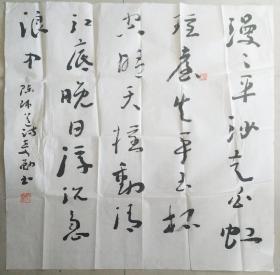 漫々平沙走白虹
瑶臺失手玉杯
空晴天摇動清
江底晚日浮沉急
浪中
陈师道诗 书